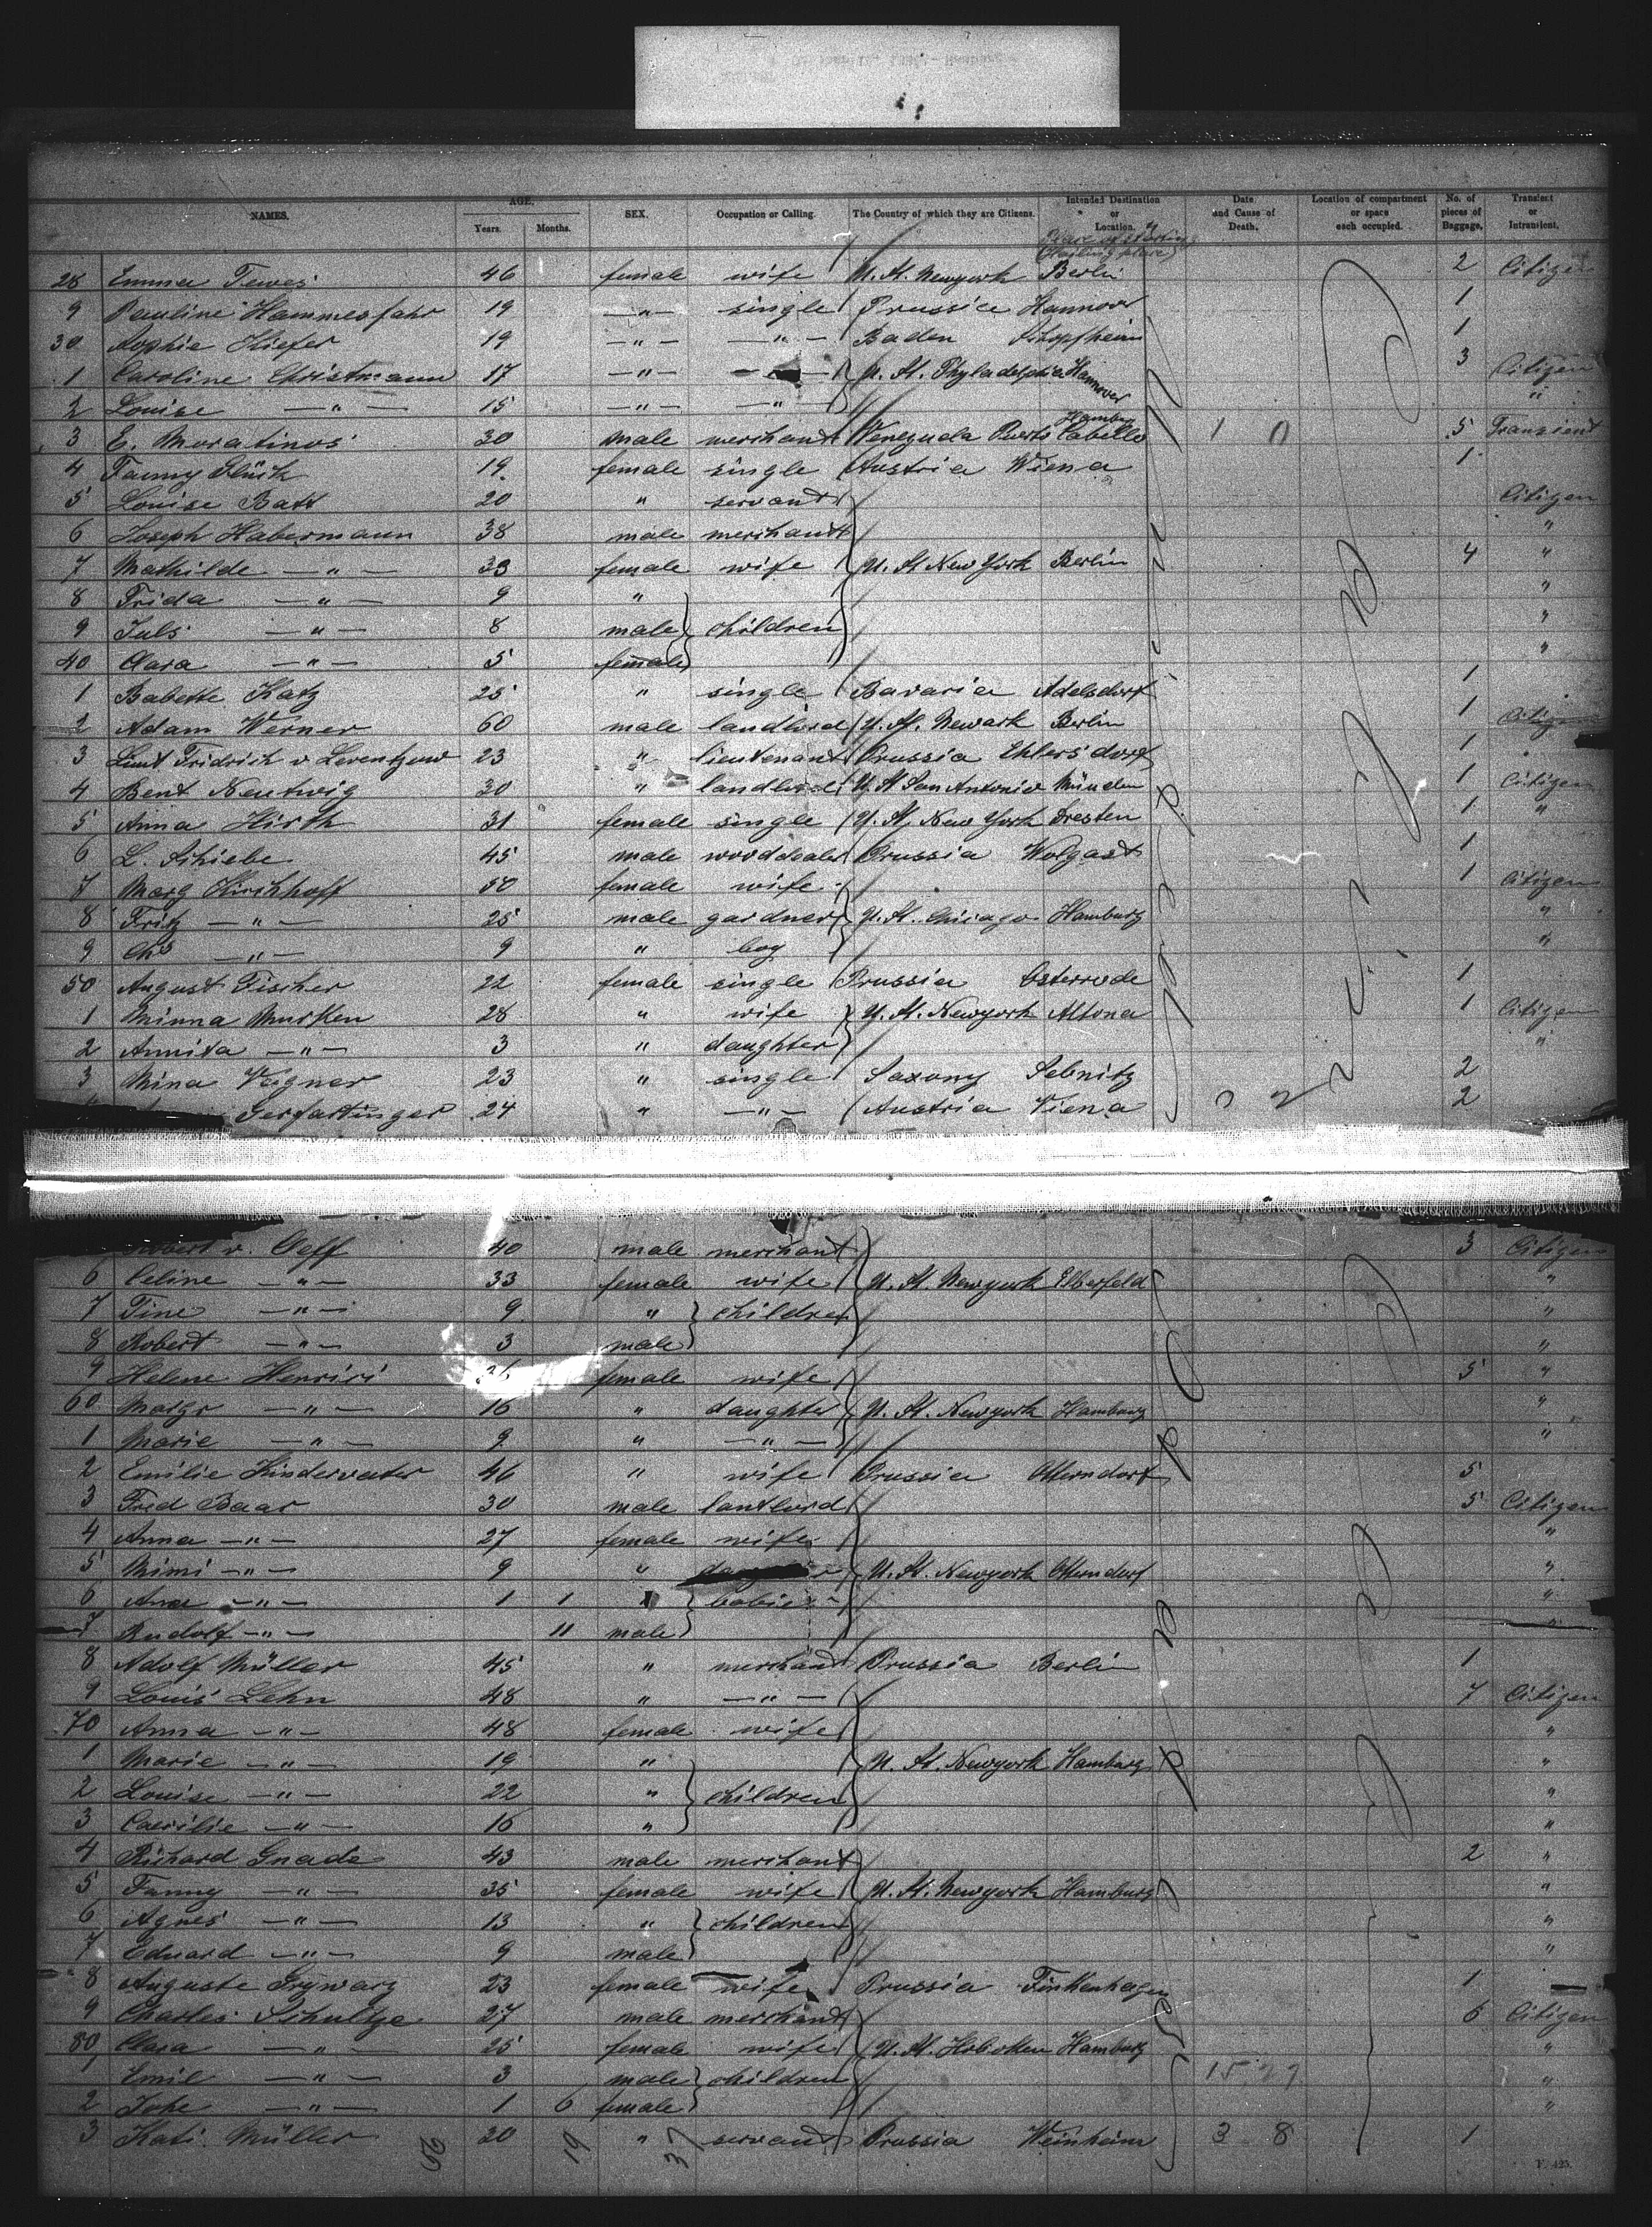 NAMES. AGE. Years. Months. SEX. Occupation or Calling. The Country of which they are Citizens. Intended Destination or Location. Date and Cause of Death. Location of compartment or space each occupied. No. of pieces of Baggage. Transient or Intransient.
28 Emma Tewes 46 female wife U. St. Newyork Berlin 2 Citizen
9 Pauline Hammesfahr 19 —"— single Prussia Hannover 1
30 Sophie Kiefer 19 —"— —"— Baden Schopfheim 1
1 Caroline Christmann 17 —"— —"— U. St. Phyladelphia Hannover 3 Citizen
2 Louise —"— 15 —"— —"— "
3 E. Moratinos 30 male merchant Venezuela Puerto Cabello Hamburg 1 0 5 Transient
4 Fanny Glück 19 female single Austria Wiena 1
5 Louise Batt 20 " servant Citizen
6 Joseph Habermann 38 male merchant "
7 Mathilde —"— 33 female wife U. St. New York Berlin 4 "
8 Frida —"— 9 " "
9 Juls —"— 8 male children "
40 Clara —"— 5 female "
1 Babette Katz 25 " single Bavaria Adelsdorf 1
2 Adam Werner 60 male landlord U. St. Newark Berlin 1 Citizen
3 Lieut. Fridrich v Leventzow 23 " lieutenant Prussia Ehlersdorf 1
4 Bent Neutwig 30 " landlord U. St San Antonio Münden 1 Citizen
5 Anna Hirth 31 female single U. St. New York Dresten 1 "
6 L. Schiebe 45 male wooddealer Prussia Wolgast 1
7 Marg Kirchhoff 50 female wife 1 Citizen
8 Fritz —"— 25 male gardner U. St. Chicago Hamburg "
9 Chs —"— 9 " boy "
50 August Fischer 22 female single Prussia Osterrode 1
1 Minna Mursken 28 " wife U. St. Newyork Altona 1 Citizen
2 Annita —"— 3 " daughter "
3 Mina Wagner 23 " single Saxony Sebnitz 2
Gerfartinger 24 " —"— Austria Viena 2
Robert v. Oeff 40 male merchant 3 Citizen
6 Celine —"— 33 female wife U. St. Newyork Elberfeld "
7 Tine —"— 9 " children "
8 Robert —"— 3 male "
9 Helene Henrici 36 female wife 5 "
60 Margr —"— 16 " daughter U. St. Newyork Hamburg "
1 Marie —"— 9 " —"— "
2 Emilie Kindervater 46 " wife Prussia Otterndorf 5
3 Fred Baar 30 male lantlord 5 Citizen
4 Anna —"— 27 female wife "
5 Mimi —"— 9 " U. St. Newyork Otterndorf "
6 Ana —"— 1 1 babies "
7 Rudolf —"— 11 male "
8 Adolf Müller 45 " merchant Prussia Berlin 1
9 Louis Lehn 48 " —"— 7 Citizen
70 Anna —"— 48 female wife "
1 Marie —"— 19 " U. St. Newyork Hamburg "
2 Louise —"— 22 " children "
3 Caecilie —"— 16 " "
4 Richard Gnade 43 male merchant 2 "
5 Fanny —"— 35 female wife U. St. Newyork Hamburg "
6 Agnes —"— 13 " children "
7 Eduard —"— 9 male "
8 Auguste Grywarz 23 female wife Prussia Finkenhagen 1
9 Charles Schultze 27 male merchant 6 Citizen
80 Clara —"— 25 female wife U. St. Hoboken Hamburg "
1 Emil —"— 3 male children "
2 Johe —"— 1 6 female "
3 Kati Müller 20 " servant Prussia Weinheim 3 8 1
19 37
F. 425.